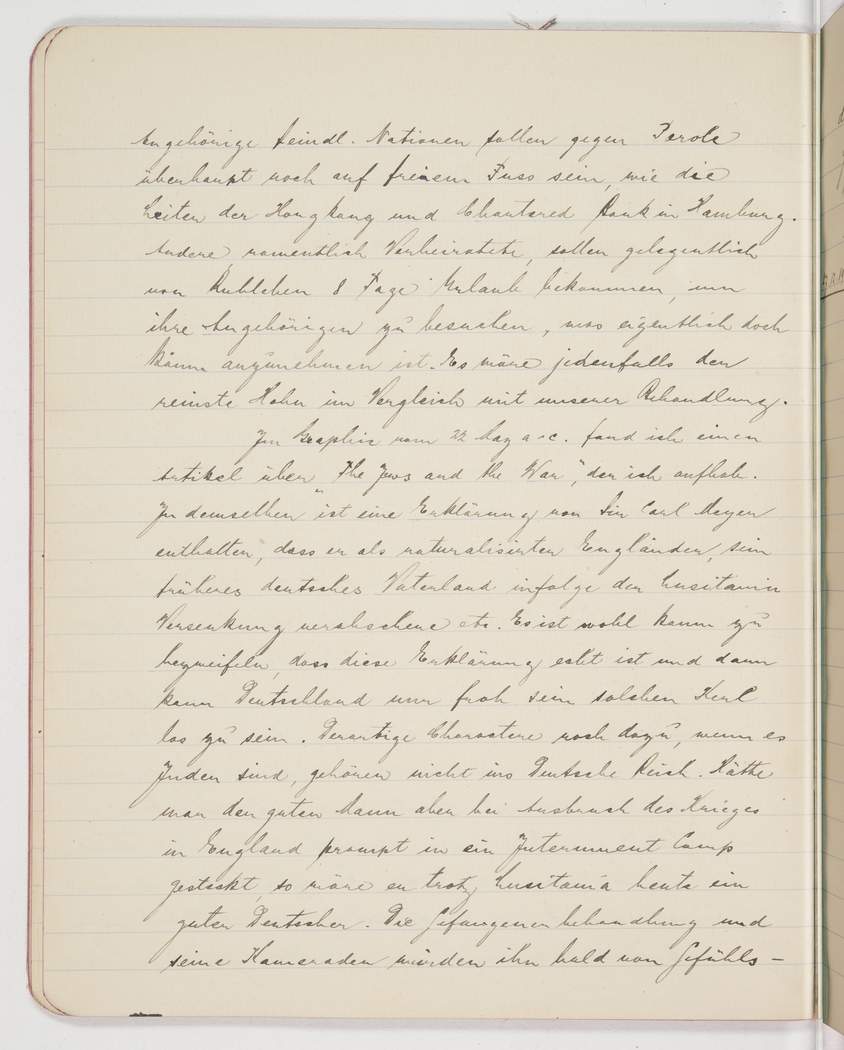 Angehörige feindl. Nationen sollen gegen Parole
überhaupt noch auf freiem Fuss sein, wie die
Leiter der Hongkong und Chartered Bank in Hamburg.
Andere namentlich Verheiratete, sollen gelegentlich
von Ruhleben 8 Tage Urlaub bekommen, um
ihre Angehörigen zu besuchen, was eigentlich doch
kaum anzunehmen ist. Es wäre jedenfalls der
reinste Hohn im Vergleich mit unserer Behandlung.
Im Graphic vom 22 May a.c. fand ich einen
Artikel über "The Jews and the War", den ich aufhob.
In demselben ist eine Erklärung von Sir Carl Meyer
enthalten, dass er als naturalisirter Engländer, sein
früheres deutsches Vaterland infolge der Lusitania
Versenkung verabscheue etc. Es ist wohl kaum zu
bezweifeln, dass diese Erklärung echt ist und dann
kann Deutschland nur froh sein solchen Kerl
los zu sein. Derartige Charactere noch dazu, wenn es
Juden sind, gehören nicht ins Deutsche Reich. Hätte
man den guten Mann aber bei Ausbruch des Krieges
in England prompt in ein Internment Camp
gesteckt, so wäre er trotz Lusitania heute ein
guter Deutscher. Die Gefangenenbehandlung und
seine Kameraden würden ihn bald von Gefühls-